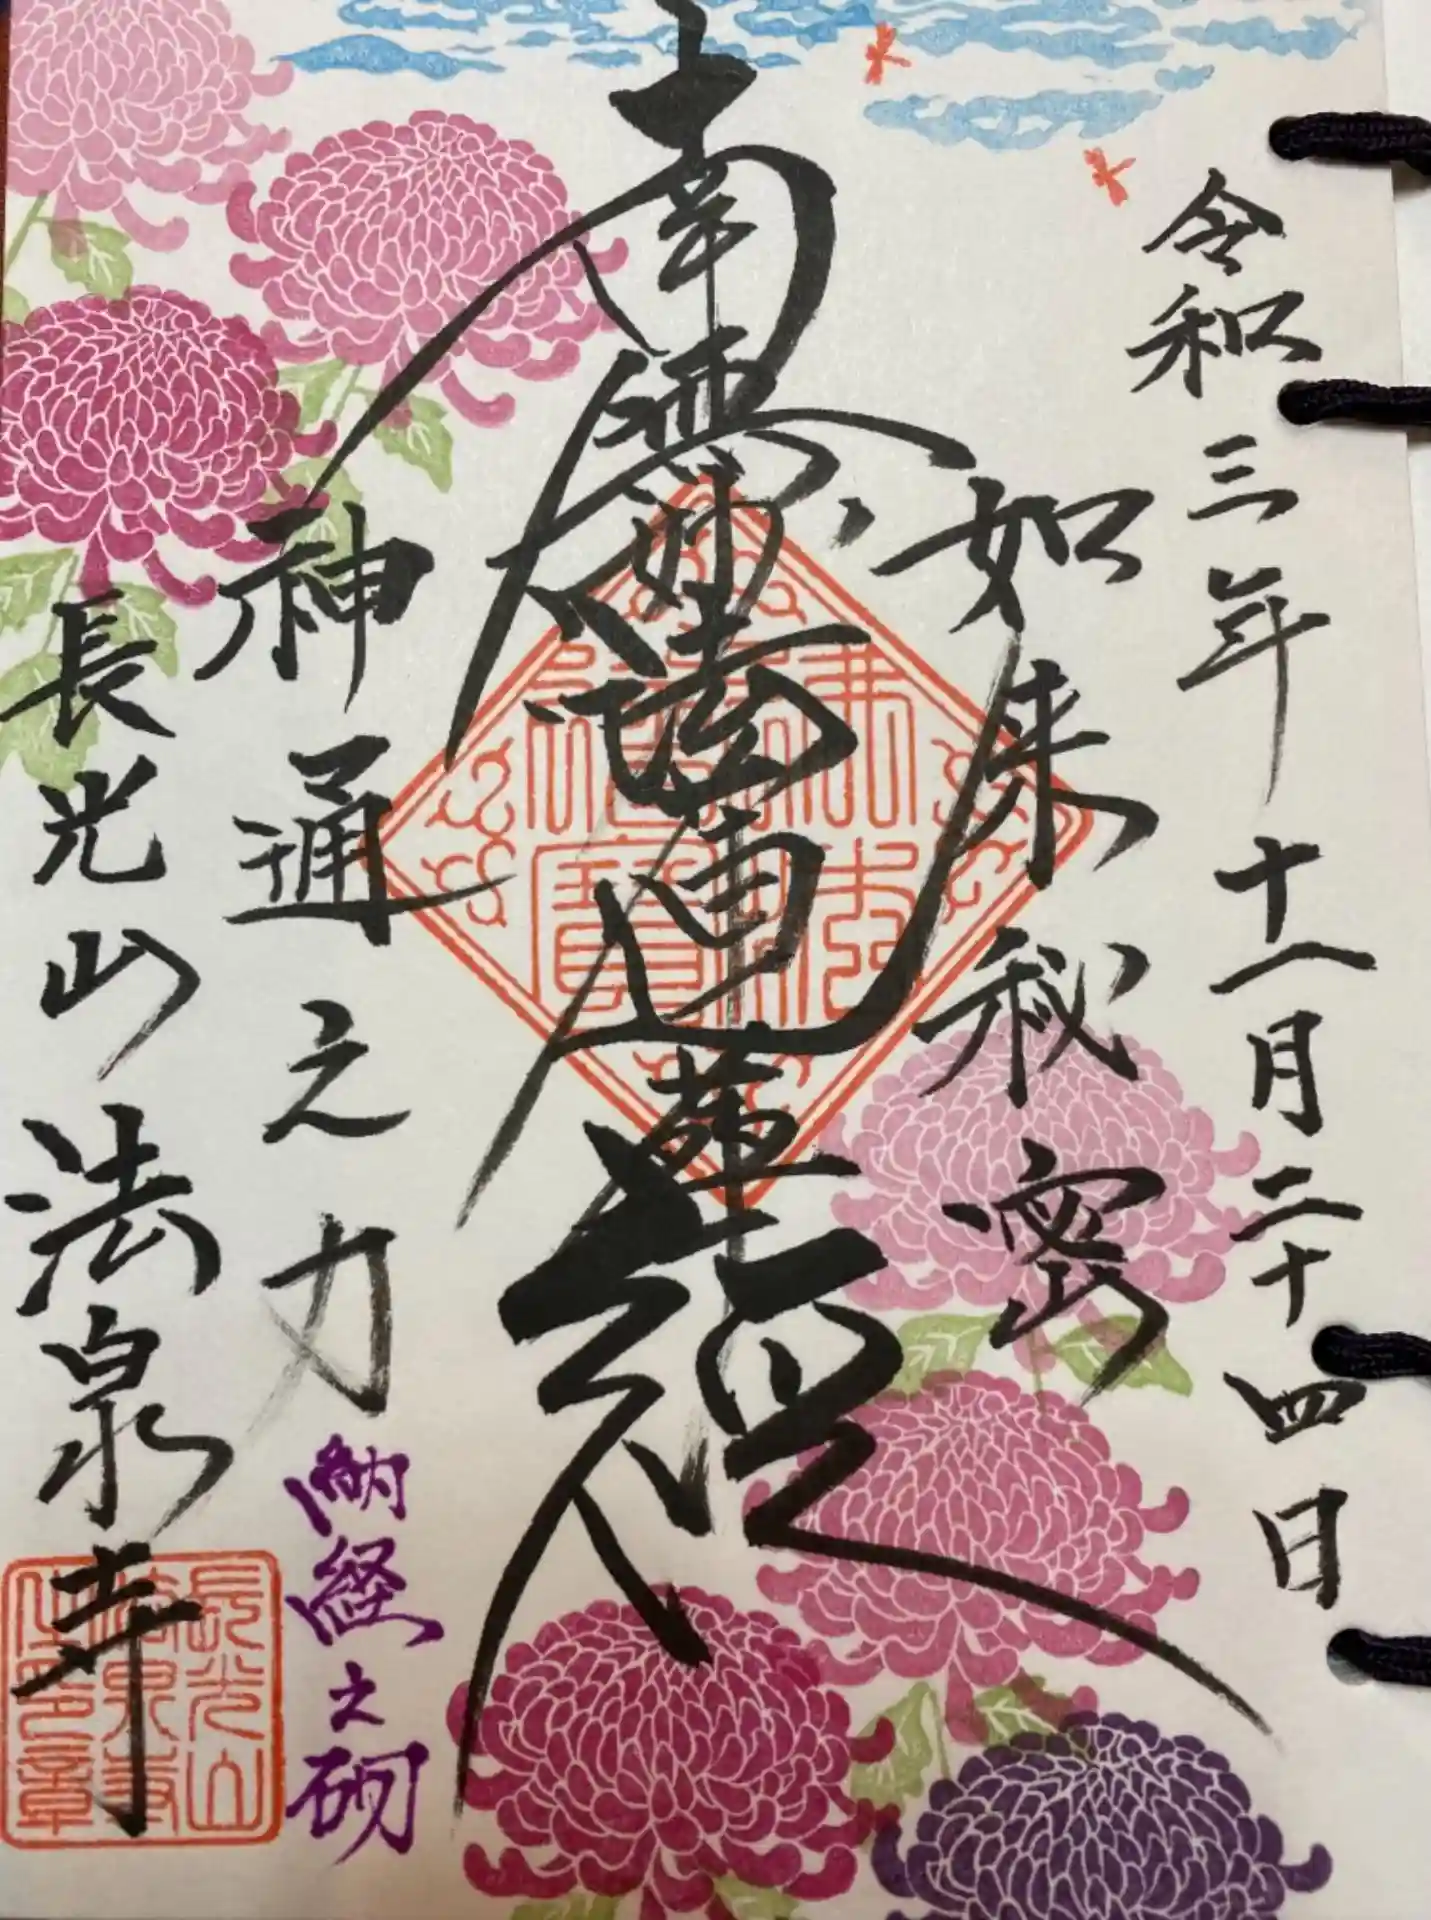 令和三年十一月二十四日
如来秘密
南無妙法蓮華経
神通之力
納経之砌
長光山法泉寺
長光山
法泉寺